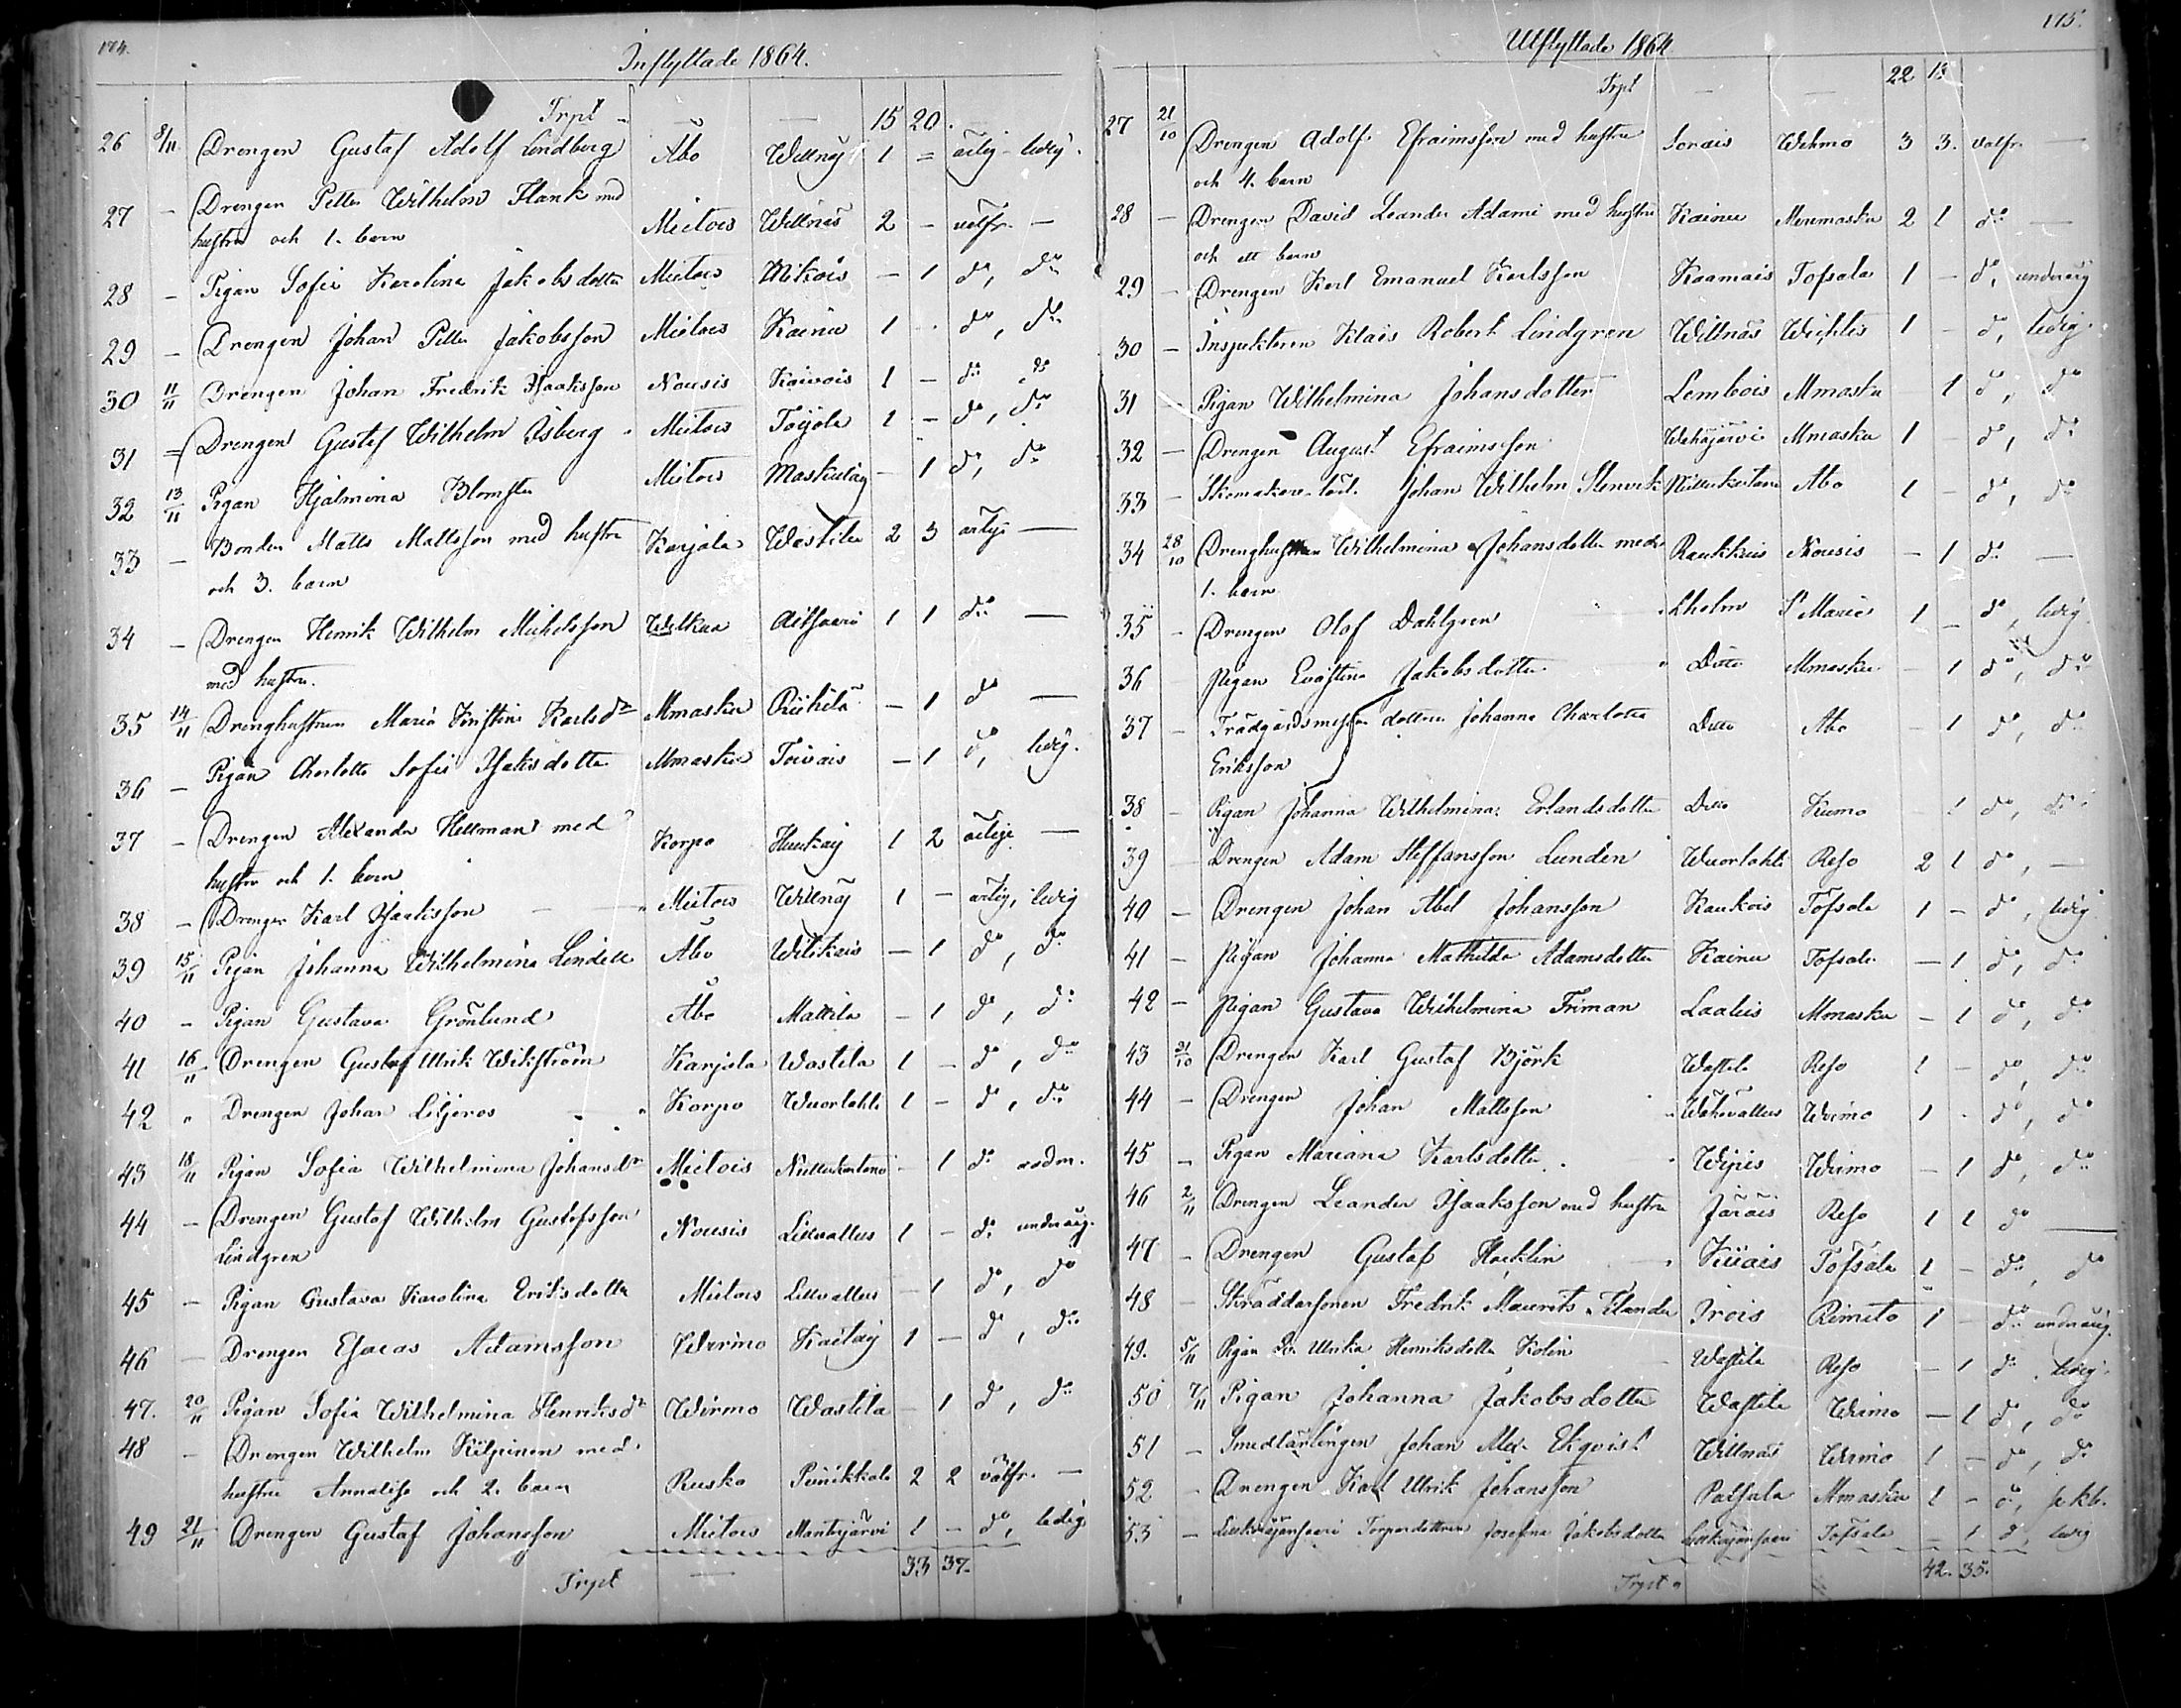 174.
Inflyttade 1864.
Trpt — — 15 20.
26 8/11 Drengen Gustaf Adolf Lindberg Åbo Willnäs 1 = ärlig - ledig.
27 — Drengen Petter Wilhelm Flank med
hustru och 1. barn Mietois Willnäs 2 - välfr. —
28 — Pigan Sofia Karolina Jakobsdotter Mietois — 1 do, do
29 — Drengen Johan Petter Jakobsson Mietois Kainu 1 . do, do
30 11/11 Drengen Johan Fredrik Isaaksson Nousis Kaivois 1 — do do
31 = Drengen Gustaf Wilhelm Isberg Mietois 1 — do, do
32 13/11 Pigan Hjalmina Blomster Mietois — 1 do, do
33 — Bonden Matts Mattsson med hustru
och 3. barn Karjala Wastila 2 3 ärlig —
34 — Drengen Henrik Wilhelm Michelsson
med hustru. Welkua Aitsaari 1 1 do —
35 14/11 Drenghustrun Maria Kristina Karlsdr Mmasku Riihila — 1 do —
36 — Pigan Charlotta Sofia Isaksdotter Mmasku Toivois — 1 do, ledig.
37 — Drengen Alexander Hellman med
hustru och 1. barn Korpo 1 2 ärlige —
38 — Drengen Karl Isaaksson Mietois Willnäs 1 — ärlig, ledig
39 15/11 Pigan Johanna Wilhelmina Lindell Åbo — 1 do, do
40 - Pigan Gustava Grönlund Åbo Mattila — 1 do, do
41 16/11 Drengen Gustaf Ulrik Wikström Karjala Wastila 1 — do, do
42 " Drengen Johan Liljeros Korpo Wuorlahti 1 — do, do
43 18/11 Pigan Sofia Wilhelmina Johansdr Mietois — 1 do
44 — Drengen Gustaf Wilhelm Gustafsson
Lindgren Nousis Lillvallus 1 — do underårig.
45 — Pigan Gustava Karolina Eriksdotter Mietois Lillvallus — 1 do, do
46 — Drengen Esaias Adamsson Wirmo 1 — do, do
47. 20/11 Pigan Sofia Wilhelmina Henriksdr Wirmo Wastila — 1 do, do
48 — Drengen Wilhelm Kilpinen med
hustru Annalisa och 2. barn Rusko Punikkala 2 2 välfr. —
49 21/11 Drengen Gustaf Johansson Mietois Mantsjärvi 1 — do, ledig
Trpt — 33 37.
175.
Utflyttade 1864
Trpt — — 22 13
27 21/10 Drengen Adolf Efraimsson med hustru Sorais Wehmo 3 3. välfr. —
och 4. barn
28 — Drengen David Leander Adami med hustru Kainu Mmasku 2 1 do —
och ett barn
29 — Drengen Karl Emanuel Karlsson Kaamais Tofsala 1 — do, underårig
30 — Inspektoren Klas Robert Lindgren Willnäs Wichtis 1 — do, ledig.
31 — Pigan Wilhelmina Johansdotter Lembois Mmasku 1 do, do
32 — Drengen August Efraimsson Mmasku 1 — do, do
33 — Johan Wilhelm Stenvik Åbo 1 — do, do
34 28/10 Drenghustrun Wilhelmina Johansdotter med Raukkais Nousis — 1 do —
1. barn
35 — Drengen Olof Dahlgren Lholm St Marie 1 — do, ledig
36 Pigan Evastina Jakobsdotter Ditto Mmasku — 1 do, do
37 — dottern Johanna Charlotta Ditto Åbo — 1 do, do
Eriksson
38 — Pigan Johanna Wilhelmina Erlandsdotter Ditto Kumo 1 do, do
39 — Drengen Adam Steffansson Lunden Wuorlahti Reso 2 1 do, —
40 — Drengen Johan Abel Johansson Kaukois Tofsala 1 — do, ledig
41 — Pigan Johanna Mathilda Adamsdotter Kainu Tofsala — 1 do, do
42 — Pigan Gustava Wilhelmina Friman Laalus Mmasku — 1 do, do
43 31/10 Drengen Karl Gustaf Björk Wastila Reso 1 — do, do
44 — Drengen Johan Mattsson Wirmo 1 - do, do
45 — Pigan Mariana Karlsdotter Wirmo — 1 do, do
46 2/11 Drengen Leander Isaaksson med hustru Järäis Reso 1 1 do —
47 — Drengen Gustaf Hacklin Tofsala 1 — do, do
48 — Skräddarsonen Fredrik Maurits Irois Rimito 1 — do underårig.
49. 5/11 Pigan Ulrika Henriksdotter Kolin Wastila Reso — 1 do ledig.
50 7/11 Pigan Johanna Jakobsdotter Wastila Wirmo — 1 do, do
51 — Smedlärlingen Johan Alex Ekqvist Willnäs Wirmo 1 — do, do
52 — Drengen Karl Ulrik Johansson Mmasku 1 — do,
53 — Torparedottren Josefina Jakobsdotter Tofsala — 1 do, ledig
Trpt 42. 35.